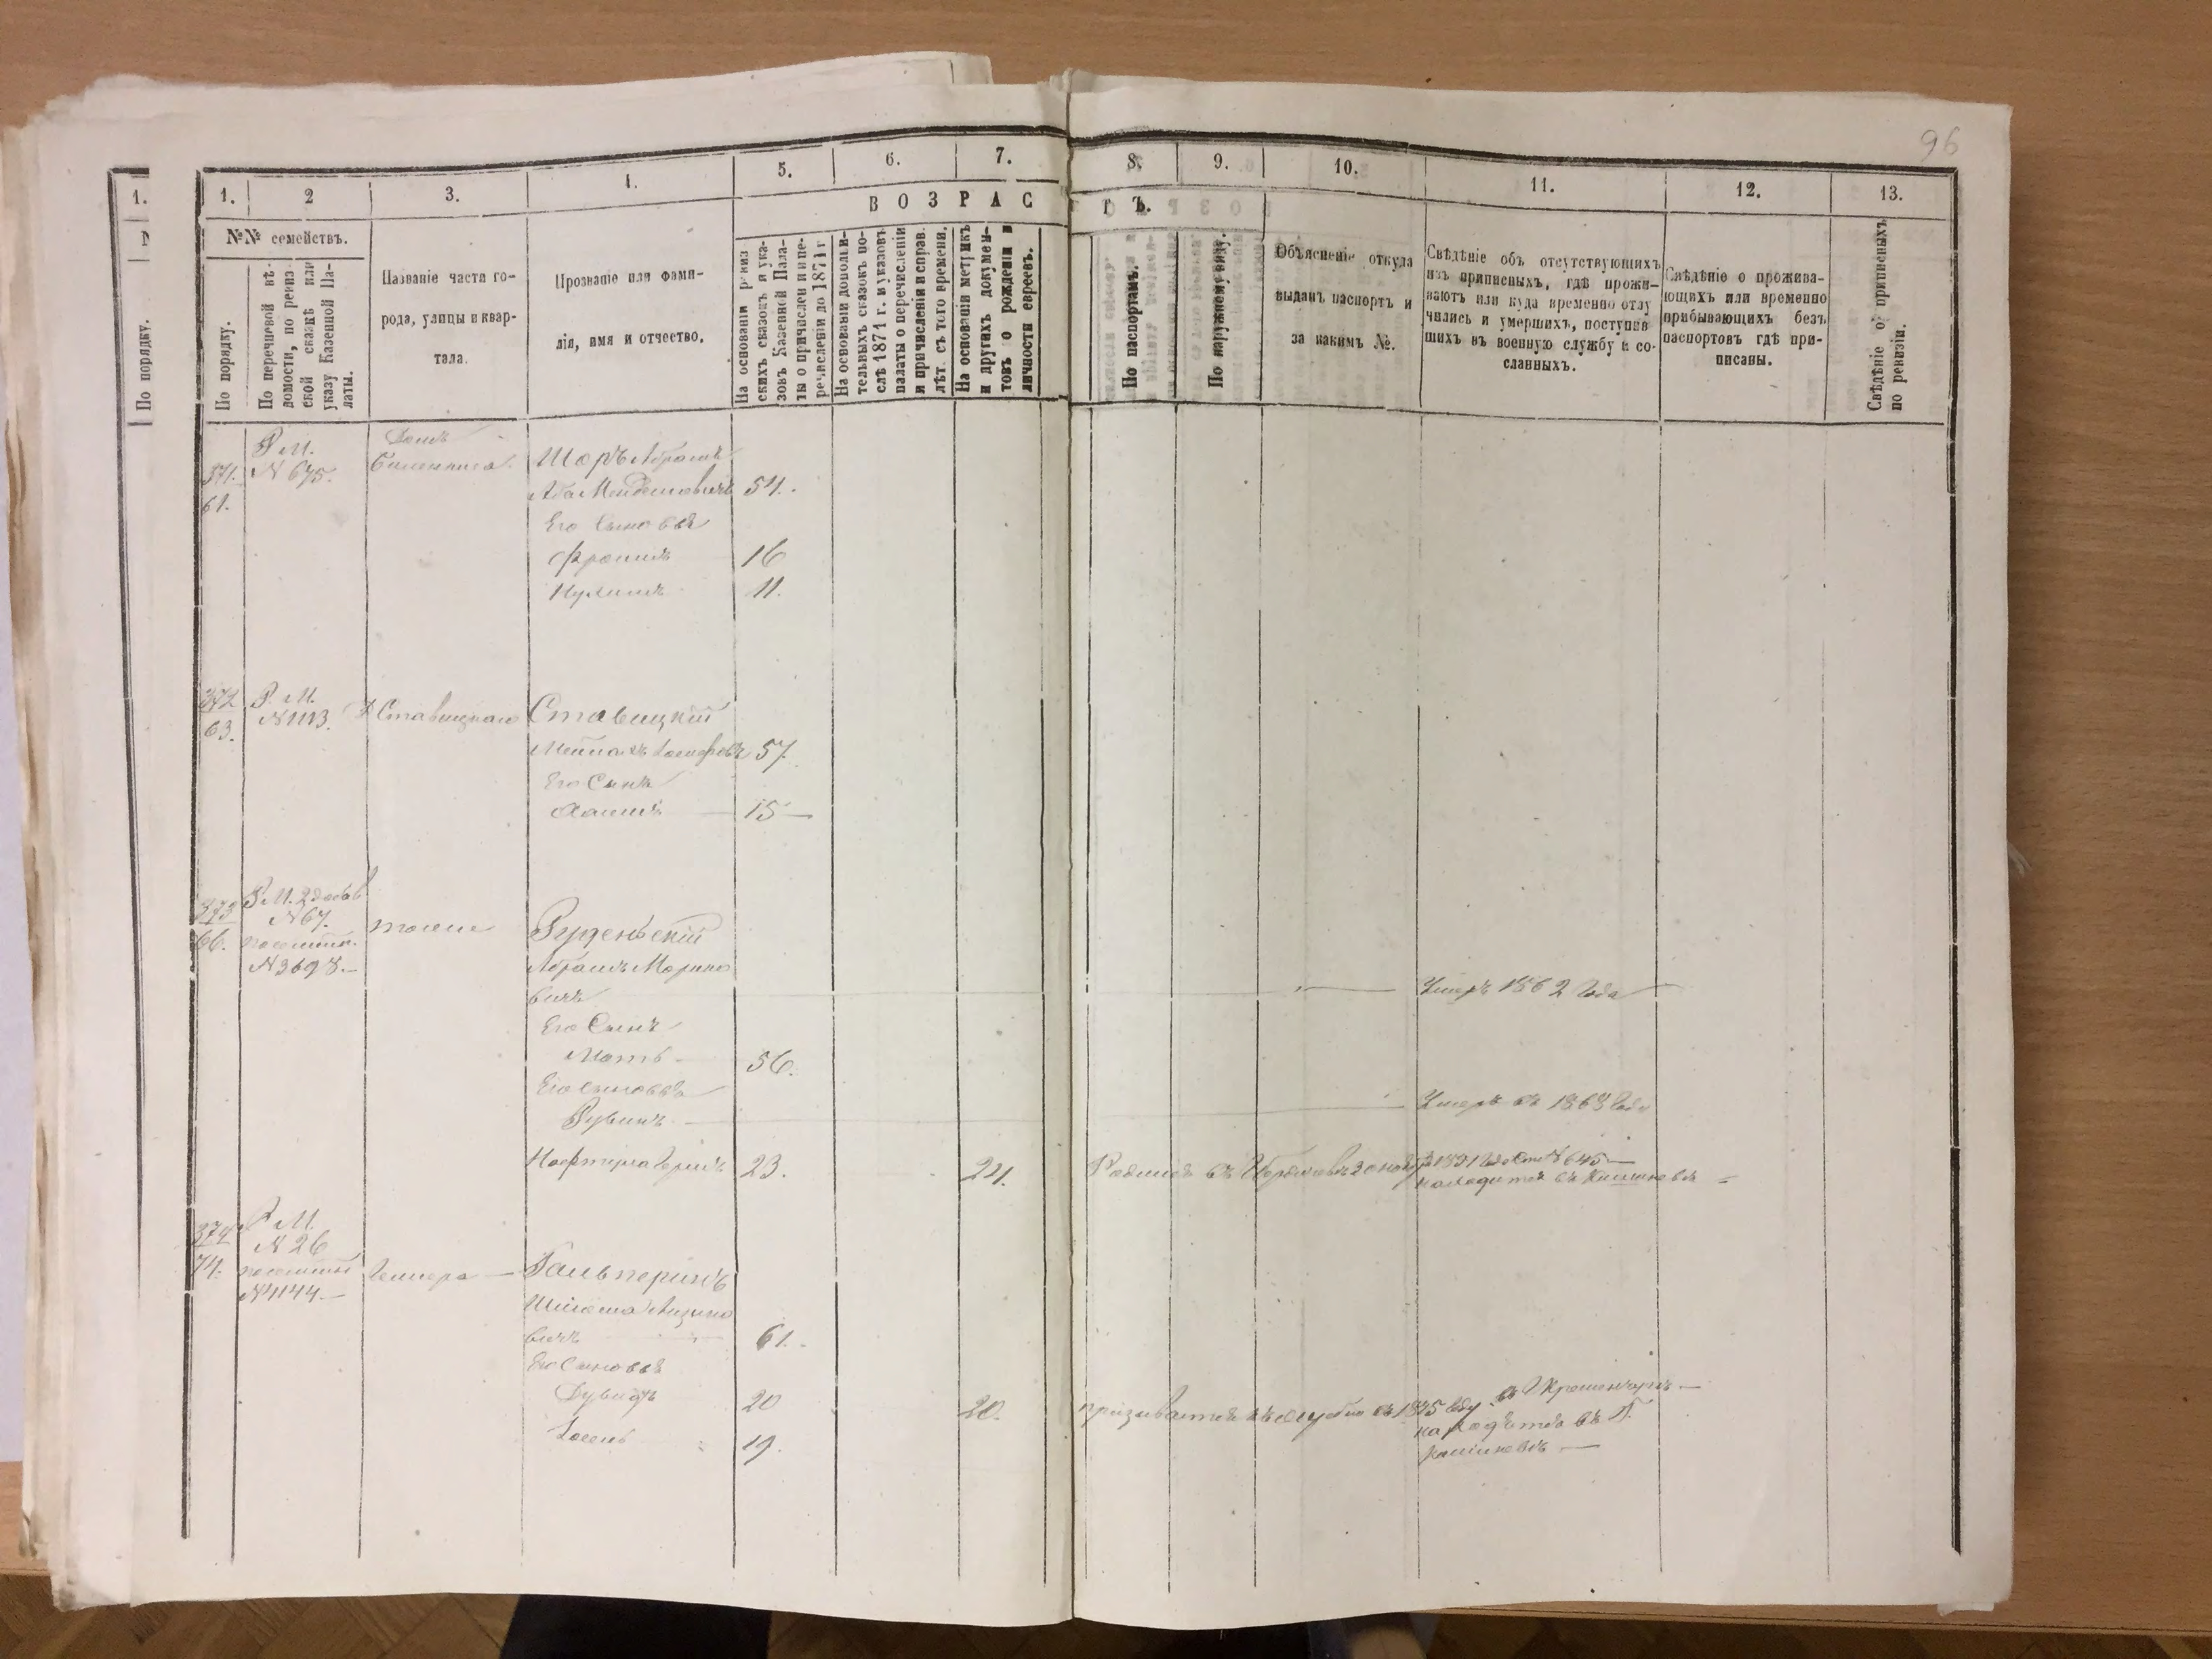 96
1.
По порядку.
1.
2
3.
4.
5.
6.
7.
8.
9.
10.
11.
12.
13.
ВОЗРАС
ТЪ.
№№ семействъ.
По порядку.
По перечневой вѣ-
домости, по ревиз
ской сказкѣ или
указу Казенной Па-
латы.
Названіе части го-
рода, улицы и квар-
тала.
Прозваніе или фами-
лія, имя и отчество.
На основаніи ревиз
скихъ сказокъ и ука-
зовъ Казенной Пала-
ты о причислен и пе-
речисленіи до 1871 г
На основаніи дополни-
тельныхъ сказокъ по-
слѣ 1871 г. и указовъ
палаты о перечисленіи
и причисленіи и справ.
лѣт. съ того времени.
На основаніи метрикъ
и другихъ докумен-
товъ о рожденіи и
личности евреевъ.
По паспортамъ.
По наружному виду.
Объясненіе откуда
выданъ паспортъ и
за какимъ №.
Свѣдѣніе объ отсутствующихъ
изъ приписныхъ, гдѣ прожи-
ваютъ или куда временно отлу
чились и умершихъ, поступив
шихъ въ военную службу и со-
сланныхъ.
Свѣдѣніе о прожива-
ющихъ или временно
прибывающихъ безъ
паспортовъ гдѣ при-
писаны.
Свѣдѣніе о приписныхъ
по ревизіи.
371.
61.
Р М.
N 675.
Домъ
Шоръ Абрамъ
Аба Мендемовичъ 54.
Его Сыновья
Фроимъ 16
Нухимъ 11.
372
63.
Р. М.
N 1113.
Д Ставицкаго
Ставицкій
57.
Его Сынъ
Хаимъ 15
373
66.
Р М.
N 67.
N 3698.
тоже
Руденьскій
Абрамъ Марко
вичъ
Умеръ 1862 Года
Его Сынъ
Мать 56.
Его сыновья
Рувинъ
Умеръ въ 1868 Году
Нафтула Гершъ 23.
24.
Родился въ
N 645
находится въ Кишиневѣ
374
74.
Р М.
N 26
N 4144.
Гальперинъ
вичъ 61.
Его Сыновья
Дувидъ 20
20.
призывается къ службѣ въ 1875 году.
находится въ г.
Кишиневѣ
Іосель 19.